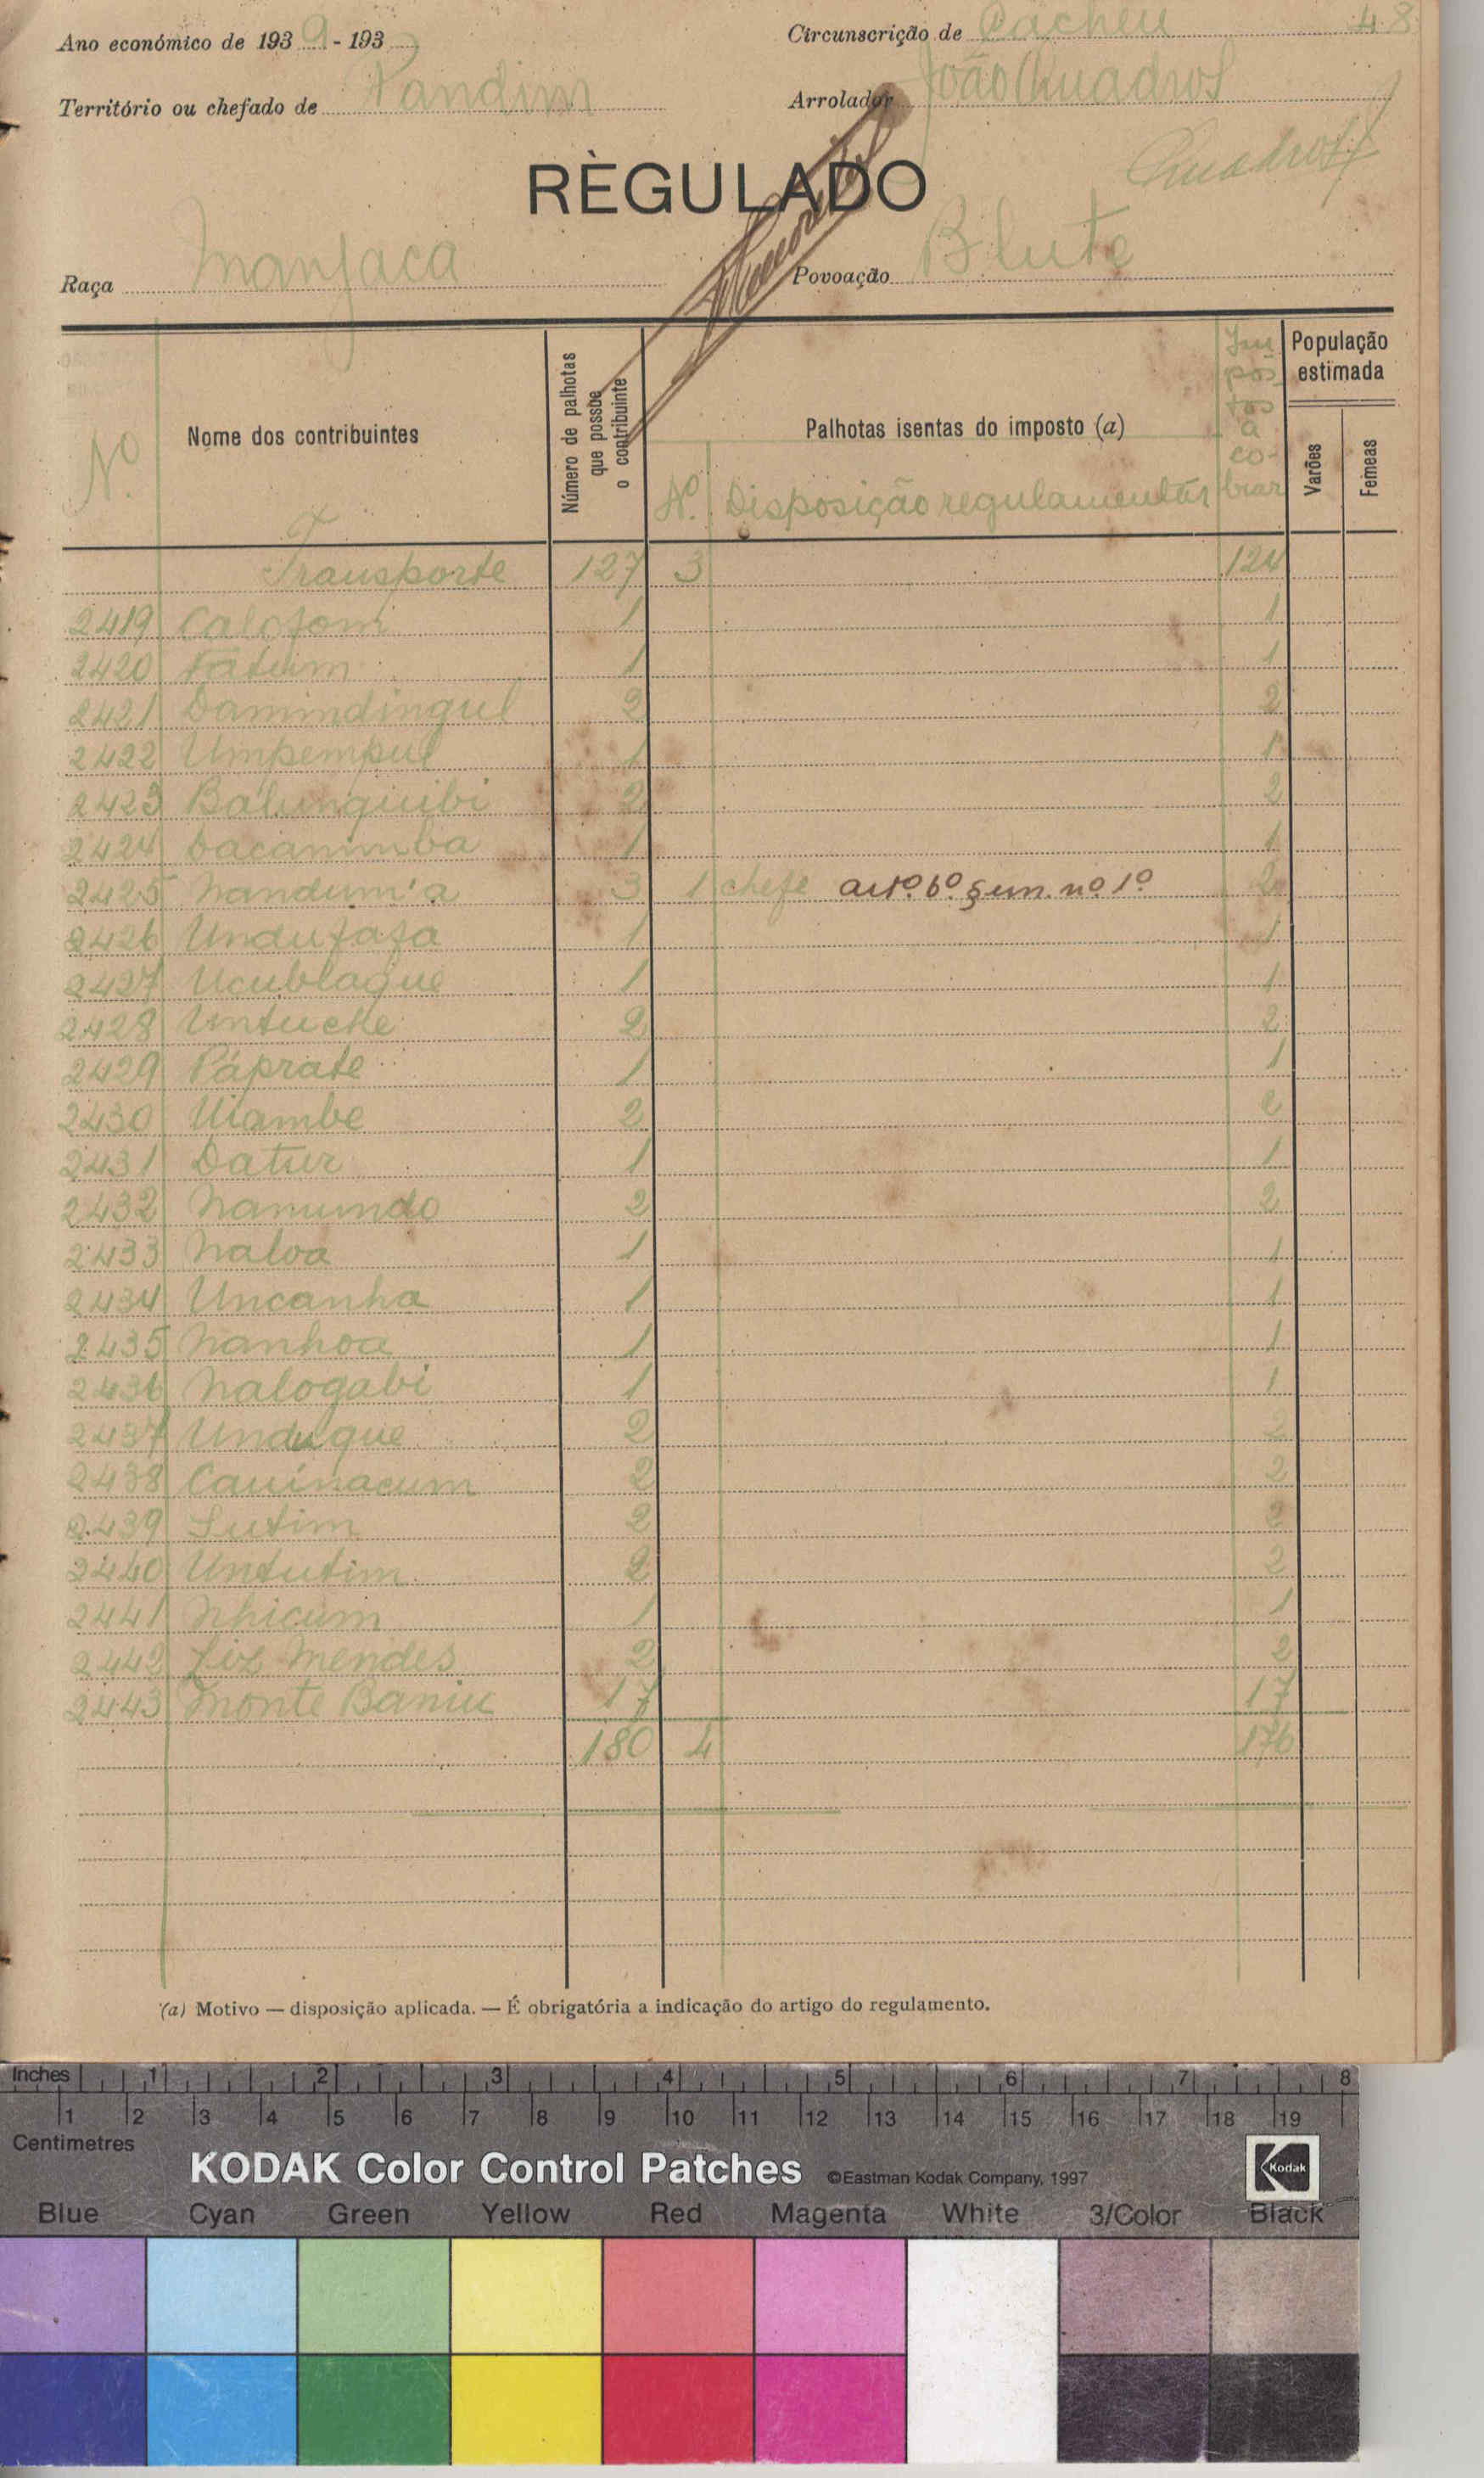 48
Ano económico de 1939-193
Circunscrição de Cacheu
Território ou chefado de Pandim
Arrolador João Quadros
Quadros
RÈGULADO
Raça Manjaca
Povoação Blute
Nº
Nome dos contribuintes
Número de palhotas que possòe o contribuinte
Palhotas isentas do imposto (a)
Nº. Disposição regulamentar
Impostos a cobrar
População estimada
Varões
Femeas
Transporte 127 3 124
2419 Calofom 1 1
2420 Fatum 1 1
2421 Damindingul 2 2
2422 Umpempul 1 1
2423 Balunguibi 2 2
2424 Dacanimba 1 1
2425 Nandum'a 3 1 chefe artº. 6º. §un. nº 1º 2
2426 Undufafa 1 1
2427 Ucublague 1 1
2428 Untuche 2 2
2429 Páprate 1 1
2430 Uiambe 2 2
2431 Datur 1 1
2432 Namundo 2 2
2433 Naloa 1 1
2434 Uncanha 1 1
2435 Nanhoa 1 1
2436 Nalogabi 1 1
2437 Undugue 2 2
2438 Cauínacum 2 2
2439 Sutim 2 2
2440 Untutim 2 2
2441 Nhicum 1 1
2442 Liz Mendes 2 2
2443 Monte Baniu 17 17
180 4 176
(a) Motivo — disposição aplicada. — É obrigatória a indicação do artigo do regulamento.
Inches 1 2 3 4 5 6 7 8
1 2 3 4 5 6 7 8 9 10 11 12 13 14 15 16 17 18 19
Centimetres
KODAK Color Control Patches ©Eastman Kodak Company, 1997 Kodak
Blue Cyan Green Yellow Red Magenta White 3/Color Black